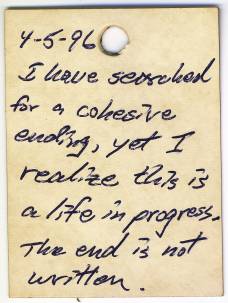 4-5-96
I have searched
for a cohesive
ending, yet I
realize this is
a life in progress.
The end is not
written.